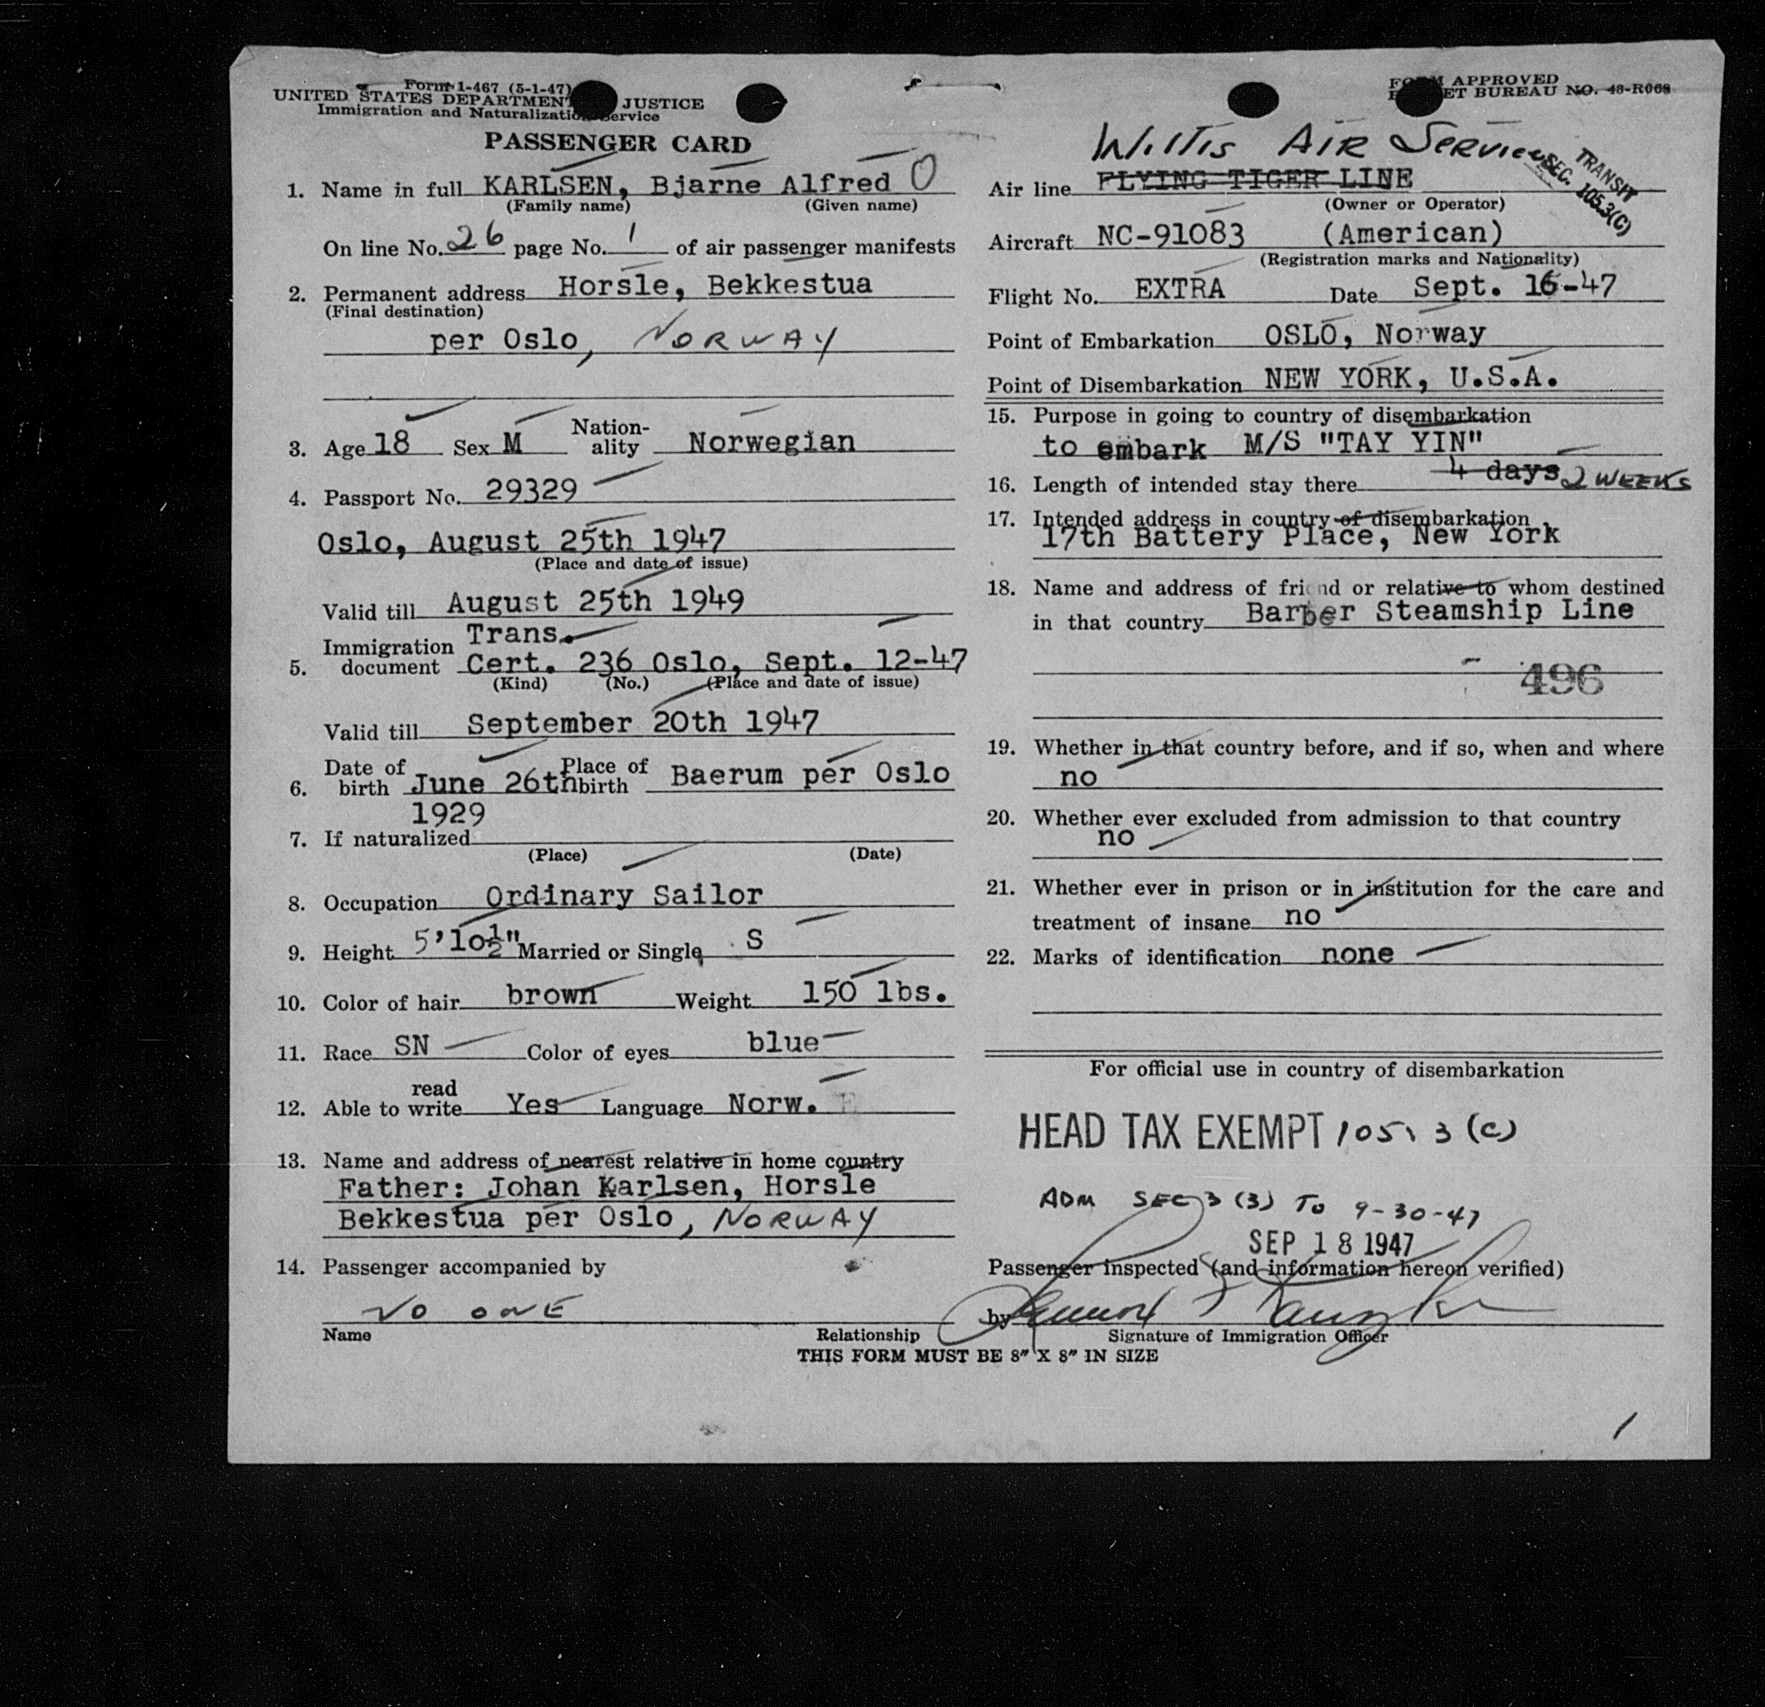 Form I-467 (5-1-47)
UNITED STATES DEPARTMENT JUSTICE
Immigration and Naturalization Service
PASSENGER CARD
1. Name in full KARLSEN, Bjarne Alfred O
(Family name) (Given name)
On line No. 26 page No. 1 of air passenger manifests
2. Permanent address Horsle, Bekkestua
(Final destination)
per Oslo, NORWAY
3. Age 18 Sex M Nation-ality Norwegian
4. Passport No. 29329
Oslo, August 25th 1947
(Place and date of issue)
Valid till August 25th 1949
5. Immigration document Trans. Cert. 236 Oslo, Sept. 12-47
(Kind) (No.) (Place and date of issue)
Valid till September 20th 1947
6. Date of birth June 26th 1929 Place of birth Baerum per Oslo
7. If naturalized
(Place) (Date)
8. Occupation Ordinary Sailor
9. Height 5'10½" Married or Single S
10. Color of hair brown Weight 150 lbs.
11. Race SN Color of eyes blue
12. Able to read write Yes Language Norw.
13. Name and address of nearest relative in home country
Father: Johan Karlsen, Horsle
Bekkestua per Oslo, NORWAY
14. Passenger accompanied by
NO ONE
Name Relationship
THIS FORM MUST BE 8" X 8" IN SIZE
FORM APPROVED
ET BUREAU NO. 43-R068
WILLIS AIR SERVICE
TRANSIT
SEC. 105.3(C)
Air line FLYING TIGER LINE
(Owner or Operator)
Aircraft NC-91083 (American)
(Registration marks and Nationality)
Flight No. EXTRA Date Sept. 16-47
Point of Embarkation OSLO, Norway
Point of Disembarkation NEW YORK, U.S.A.
15. Purpose in going to country of disembarkation
to embark M/S "TAY YIN"
16. Length of intended stay there 4 days 2 WEEKS
17. Intended address in country of disembarkation
17th Battery Place, New York
18. Name and address of friend or relative to whom destined
in that country Barber Steamship Line
496
19. Whether in that country before, and if so, when and where
no
20. Whether ever excluded from admission to that country
no
21. Whether ever in prison or in institution for the care and
treatment of insane no
22. Marks of identification none
For official use in country of disembarkation
HEAD TAX EXEMPT 105.3 (C)
ADM SEC 3 (3) TO 9-30-47
SEP 18 1947
Passenger inspected (and information hereon verified)
by
Signature of Immigration Officer
1